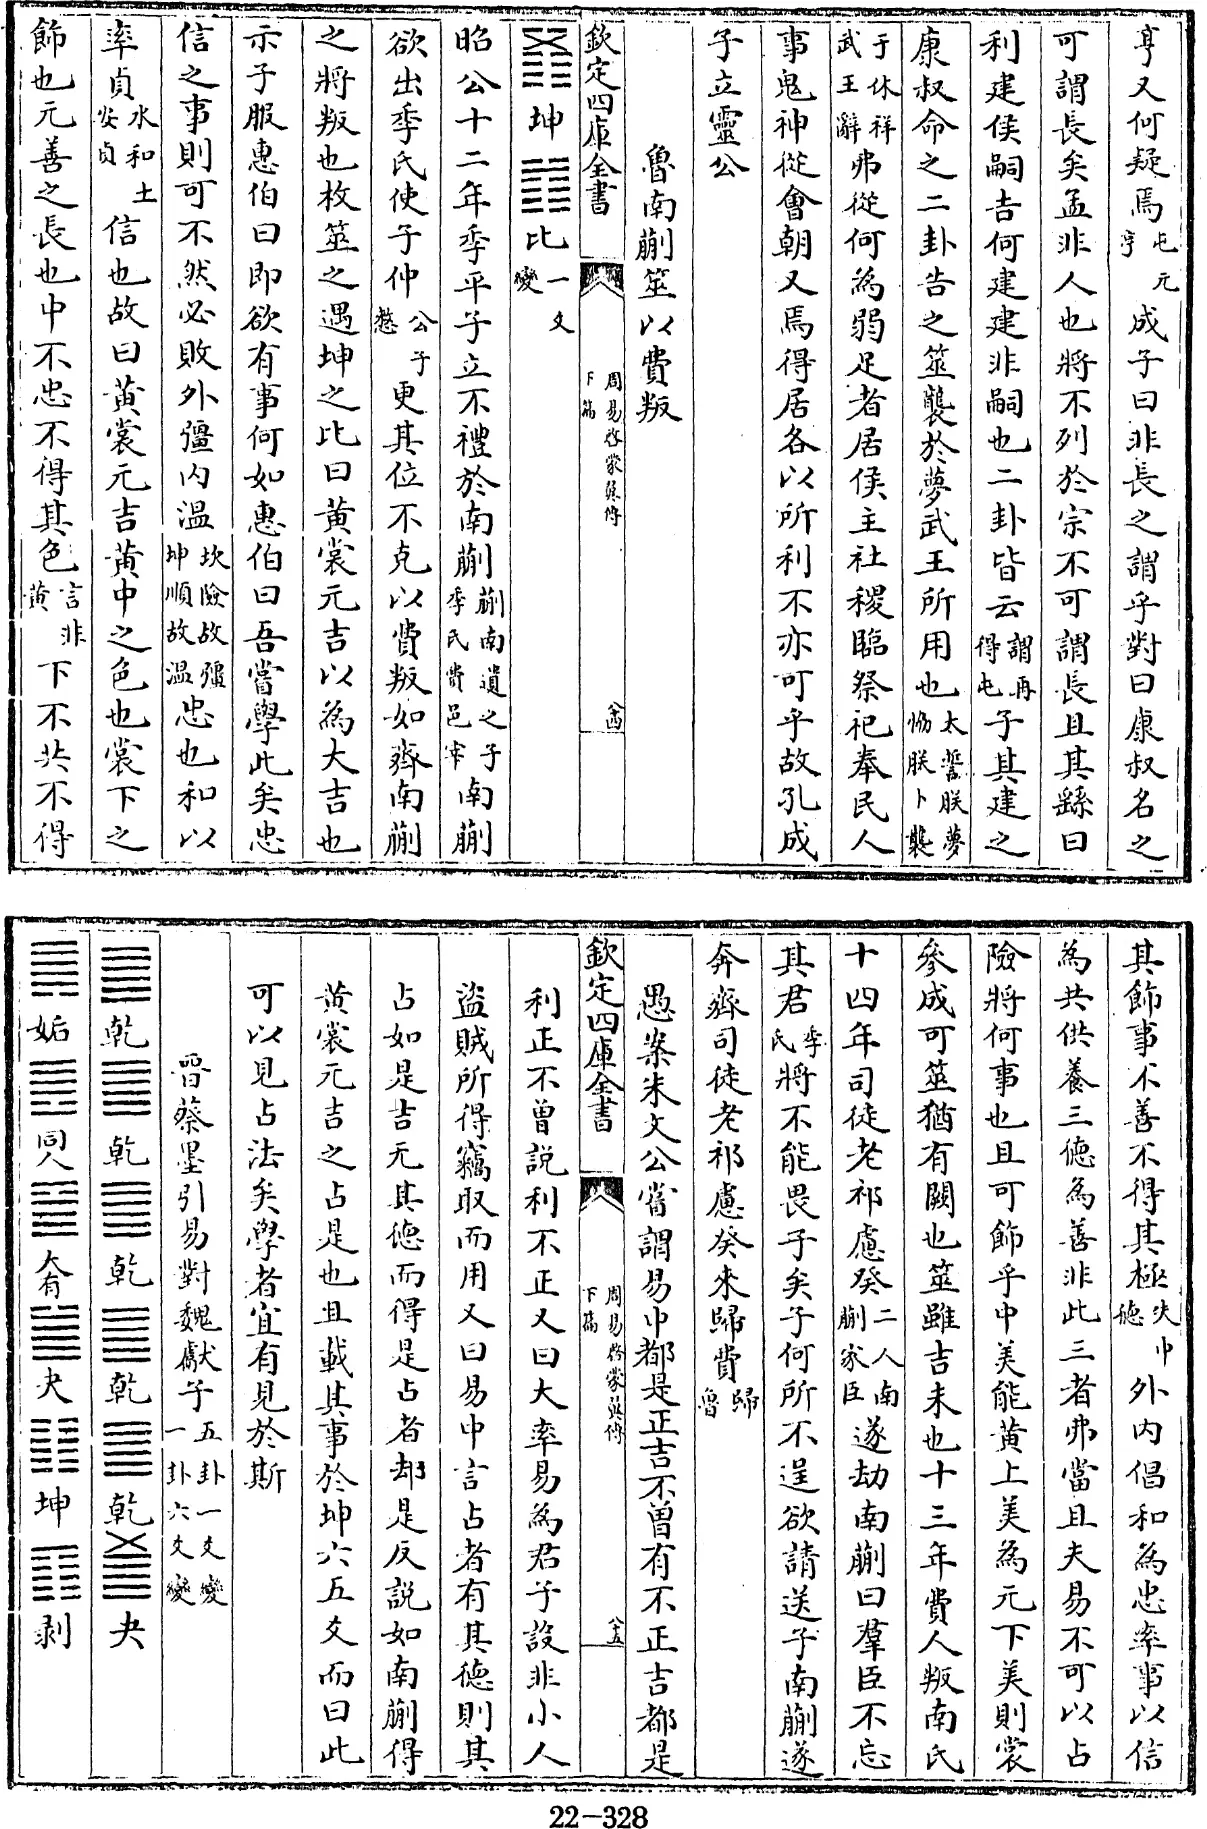 亨又何疑焉屯元亨成子曰非長之謂乎對曰康叔名之
可謂長矣孟非人也將不列於宗不可謂長且其繇曰
利建侯嗣吉何建建非嗣也二卦皆云謂再得屯子其建之
康叔命之二卦告之筮襲於夢武王所用也太誓朕夢協朕卜襲
于休祥武王辭弗從何為弱足者居侯主社稷臨祭祀奉民人
事鬼神從會朝又焉得居各以所利不亦可乎故孔成
子立靈公
魯南蒯筮以費叛
欽定四庫全書
周易啓蒙翼傳下篇
八十四
坤䷇比一爻變
昭公十二年季平子立不禮於南蒯蒯南遺之子季氏費邑宰南蒯
欲出季氏使子仲公子憖更其位不克以費叛如齊南蒯
之將叛也枚筮之遇坤之比曰黃裳元吉以為大吉也
示子服惠伯曰即欲有事何如惠伯曰吾嘗學此矣忠
信之事則可不然必敗外彊内溫坎險故彊坤順故溫忠也和以
率貞水和土安貞信也故曰黃裳元吉黃中之色也裳下之
飾也元善之長也中不忠不得其色言非黃下不共不得
其飾事不善不得其極失中德外内倡和為忠率事以信
為共供養三德為善非此三者弗當且夫易不可以占
險將何事也且可飾乎中美能黃上美為元下美則裳
參成可筮猶有闕也筮雖吉未也十三年費人叛南氏
十四年司徒老祁慮癸二人南蒯家臣遂劫南蒯曰羣臣不忘
其君季氏將不能畏子矣子何所不逞欲請送子南蒯遂
奔齊司徒老祁慮癸來歸費歸魯
愚案朱文公嘗謂易中都是正吉不曾有不正吉都是
欽定四庫全書
周易啓蒙翼傳下篇
八十五
利正不曾説利不正又曰大率易為君子設非小人
盜賊所得竊取而用又曰易中言占者有其德則其
占如是吉无其德而得是占者却是反説如南蒯得
黃裳元吉之占是也且載其事於坤六五爻而曰此
可以見占法矣學者宜有見於斯
晉蔡墨引易對魏獻子五卦一爻變一卦六爻變
䷀乾䷀乾䷀乾䷀乾䷀乾䷪夬
䷫姤䷌同人䷍大有䷪夬䷁坤䷖剥
22-328